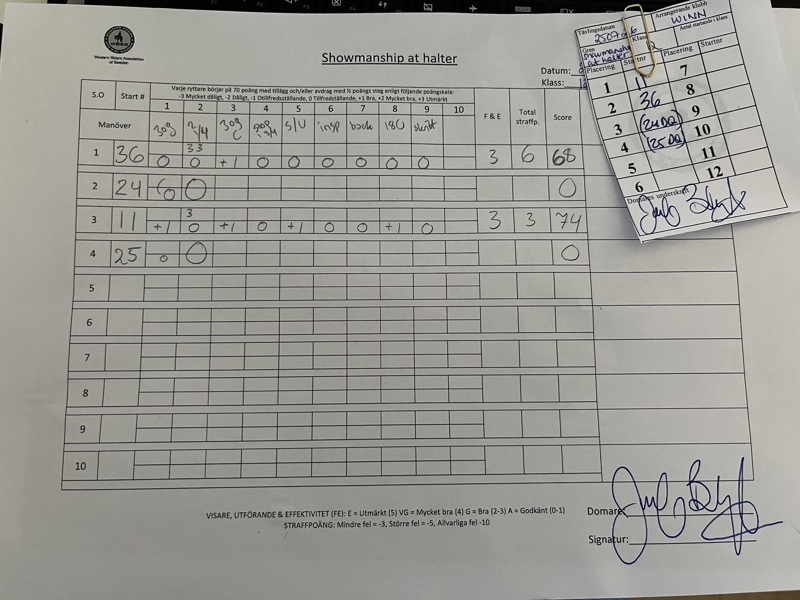 WRAS
Western Riders Association
of Sweden
Showmanship at halter
Datum:
Klass:
S.O Start # Varje ryttare börjar på 70 poäng med tillägg och/eller avdrag med ½ poängs steg enligt följande poängskala:
-3 Mycket dåligt, -2 Dåligt, -1 Otillfredsställande, 0 Tillfredställande, +1 Bra, +2 Mycket bra, +3 Utmärkt
1 2 3 4 5 6 7 8 9 10 F & E Total straffp. Score
Manöver insp back 180 skritt
33
1 36 0 0 +1 0 0 0 0 0 0 3 6 68
2 24 0 0 0
3
3 11 +1 0 +1 0 +1 0 0 +1 0 3 3 74
4 25 0 0 0
5
6
7
8
9
10
VISARE, UTFÖRANDE & EFFEKTIVITET (FE): E = Utmärkt (5) VG = Mycket bra (4) G = Bra (2-3) A = Godkänt (0-1)
STRAFFPOÄNG: Mindre fel = -3, Större fel = -5, Allvarliga fel -10
Domare
Signatur:
Tävlingsdatum Arrangerande klubb
WINN
Gren Klass Antal startande i klass
Showmanship
at halter
Placering Startnr Placering Startnr
1 11 7
2 36 8
3 (24 DQ) 9
4 (25 DQ) 10
5 11
6 12
Domares underskrift